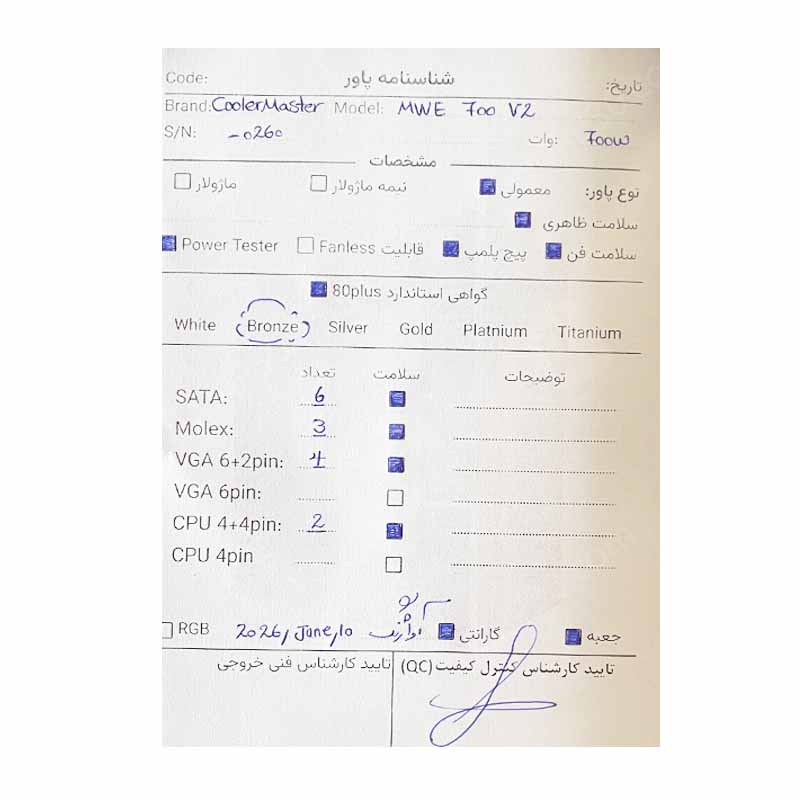 Code: شناسنامه پاور تاریخ:
Brand: CoolerMaster Model: MWE 700 V2
S/N: -0260 وات: 700W
مشخصات
نوع پاور: معمولی نیمه ماژولار ماژولار
سلامت ظاهری
سلامت فن پیچ پلمپ قابلیت Fanless Power Tester
گواهی استاندارد 80plus
White Bronze Silver Gold Platnium Titanium
تعداد سلامت توضیحات
SATA: 6
Molex: 3
VGA 6+2pin: 4
VGA 6pin:
CPU 4+4pin: 2
CPU 4pin
RGB 2026, June, 10 گارانتی جعبه
تایید کارشناس کنترل کیفیت (QC) تایید کارشناس فنی خروجی